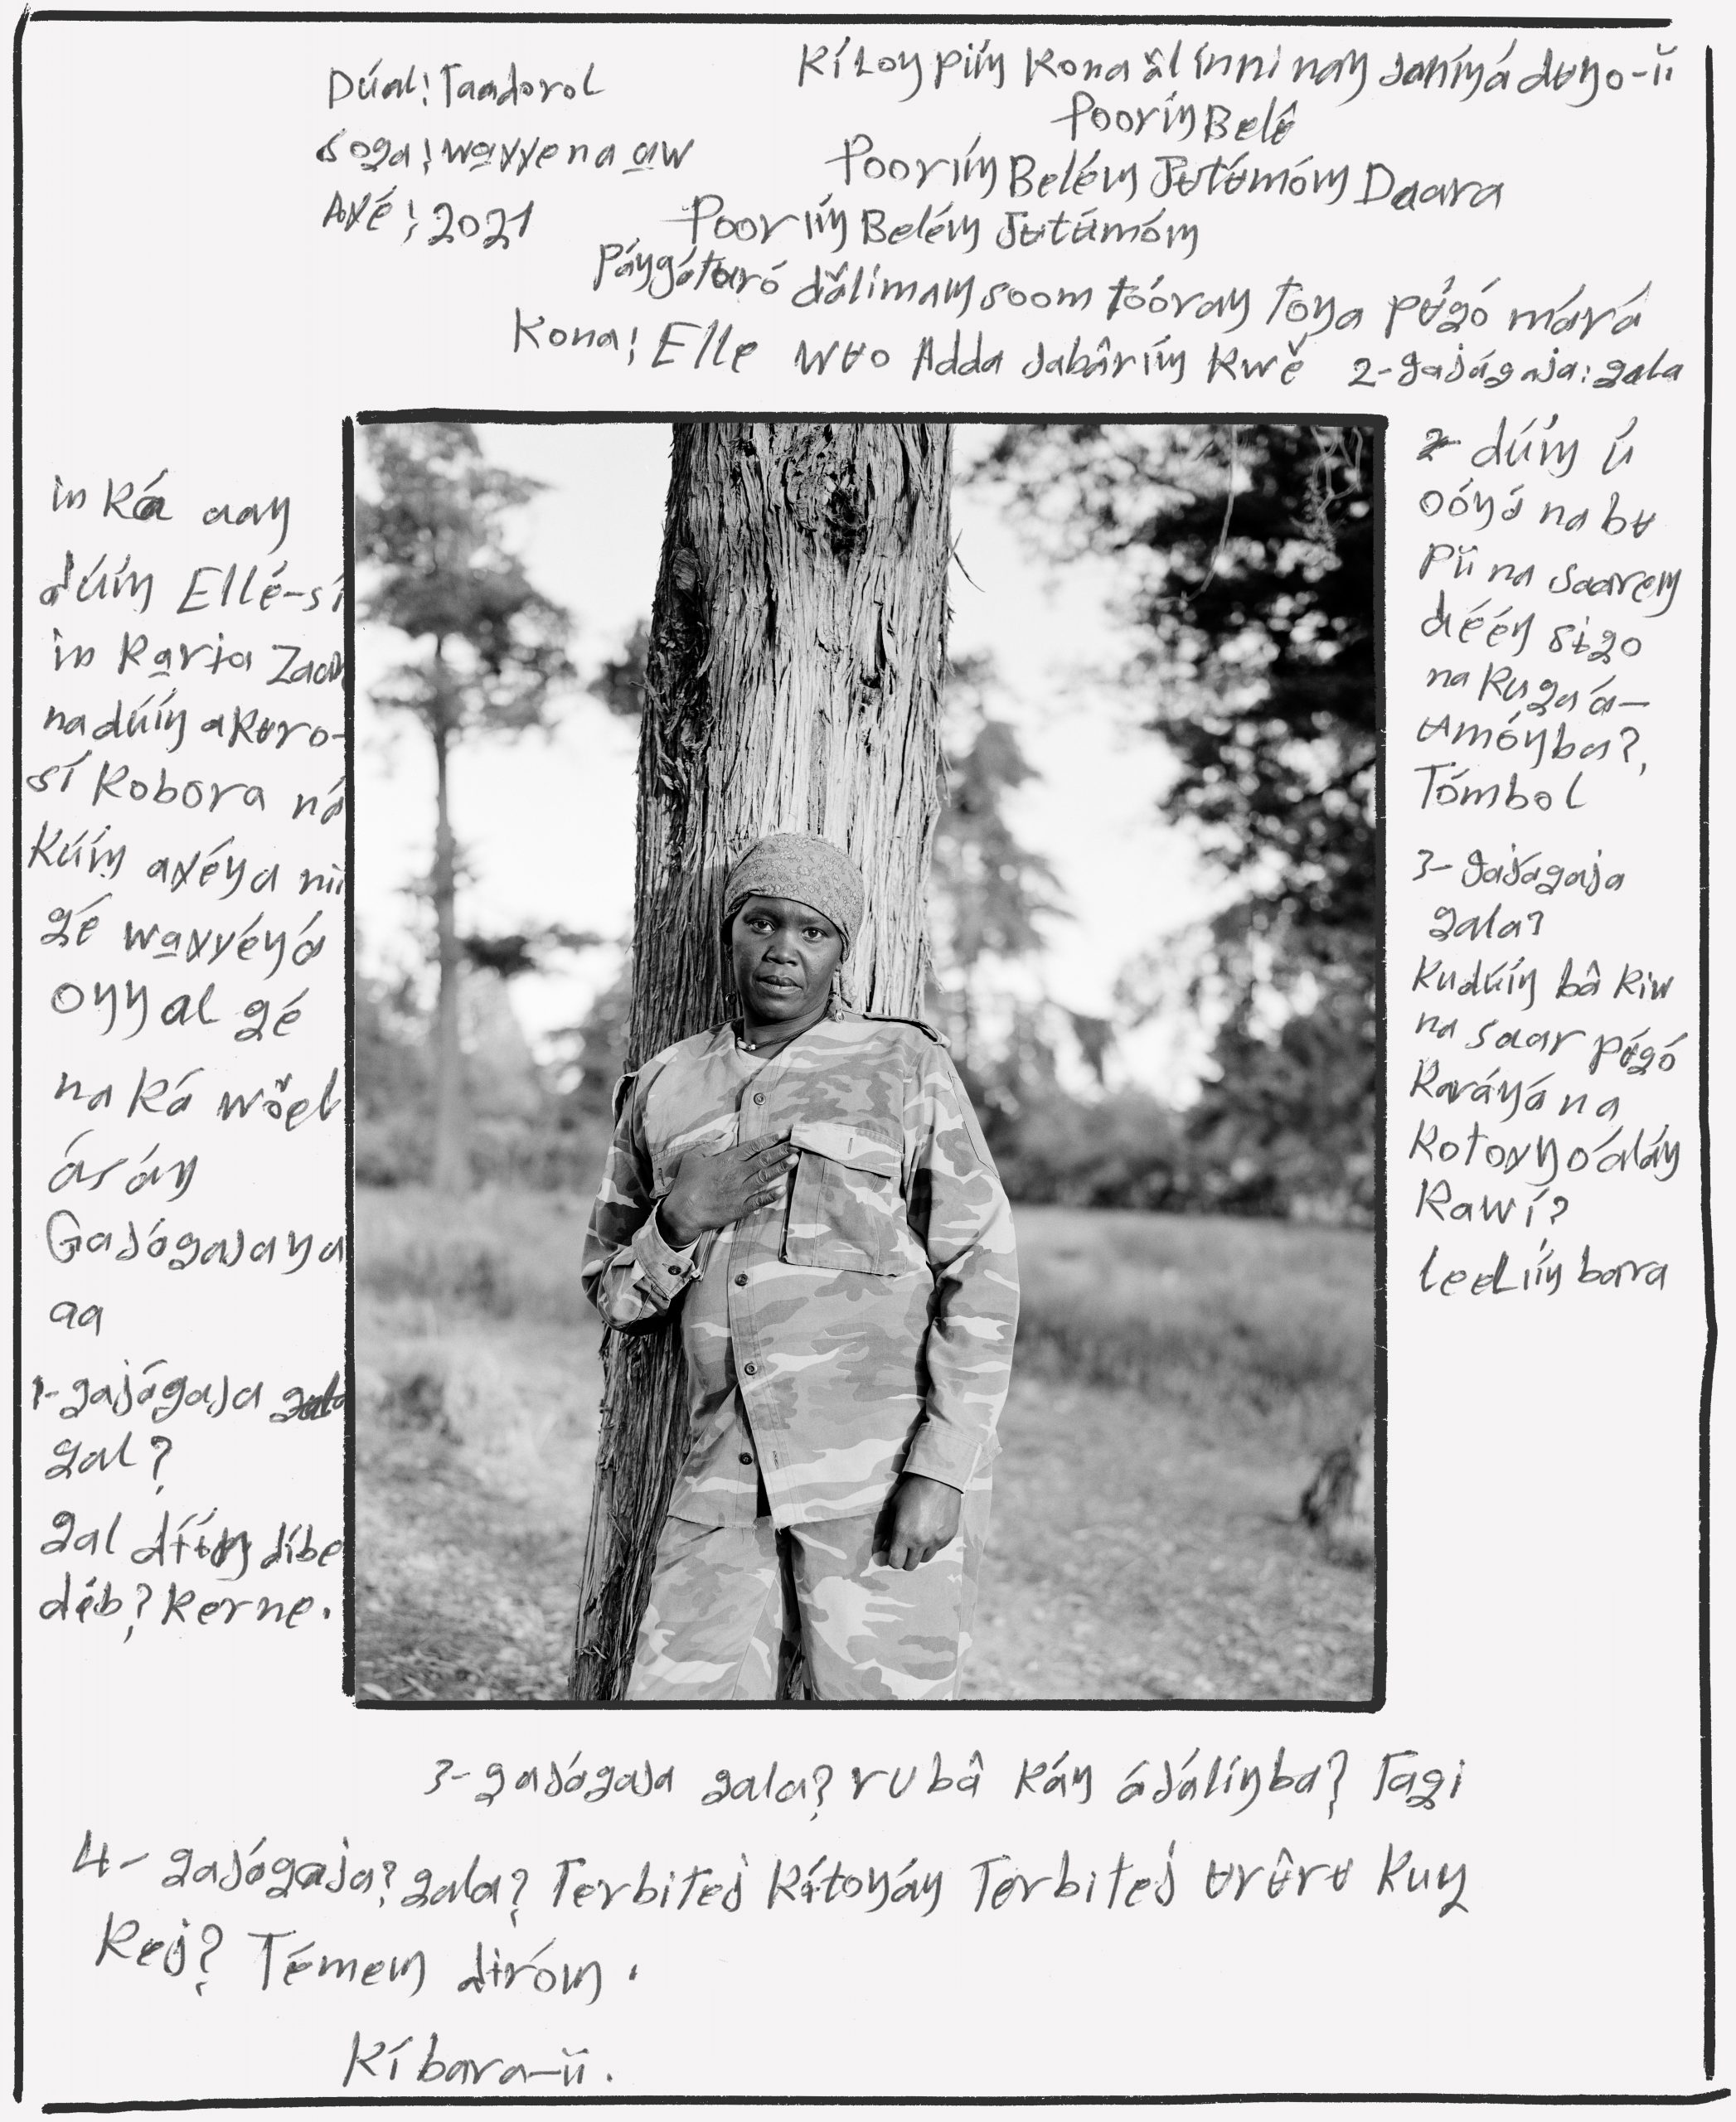 Dúal! Taadorol
soga! wa̱yyena a̱w
Ayé! 2021
Kí Loŋ piíŋ Kona ǎl ínni naŋ Janíŋá dʉŋo-ǐi
Pooríŋ Belê
Pooríŋ Beléŋ Jʉtʉ́móŋ Daara
Pooríŋ Beléŋ Jʉtʉ́móŋ
dǎlimaŋ soom tóóraŋ toŋa pʉ́gó márá
Kona! Elle wʉo Adda Jabâríŋ Kwě 2-gajágaja: gala
in ká aaŋ
dúíŋ Ellé-sí
in ka̱rja Zaaŋ
na dúíŋ akʉro-
sí Kobora ná
Kúíŋ ayéŋa nii
gé wa̱yyéŋá
Oŋŋal gé
na ká wǒel
ásáŋ
Gajágajaŋa
aa
1-gajágaja
gal?
gal díbe
déb? Kerne.
2- dúíŋ ú
oóŋá na bʉ
Pǐi na saareŋ
dééŋ sɨgo
na kugaá-
ʉmóŋba?
Tómbol
3- gajágaja
gala?
Kudúíŋ bâ kiw
na saar pʉ́gó
Karáŋá na
Kotoyŋoáláŋ
Kawí?
leelííŋ bara
3- gajágaja gala? rU bâ Káŋ ájálíŋba? Tagi
4- gajágaja? gala? Terbitej Kɨ́toŋáŋ Terbitej ʉrʉ̂rʉ Kuŋ
Kej? Témeŋ dɨróŋ.
Kí bara-ǐi.